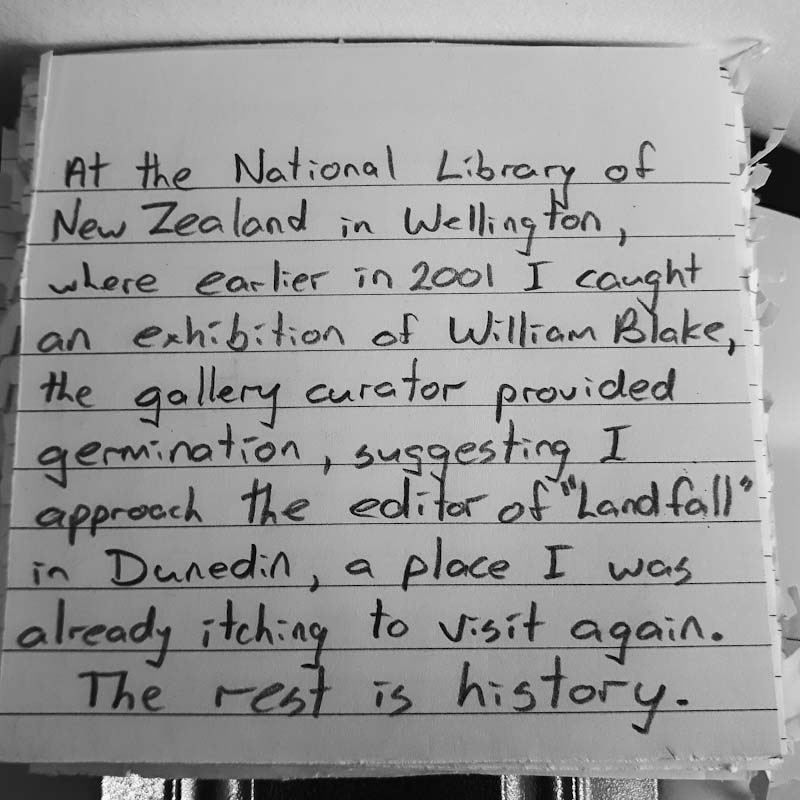 At the National Library of
New Zealand in Wellington,
where earlier in 2001 I caught
an exhibition of William Blake,
the gallery curator provided
germination, suggesting I
approach the editor of "Landfall"
in Dunedin, a place I was
already itching to visit again.
The rest is history.